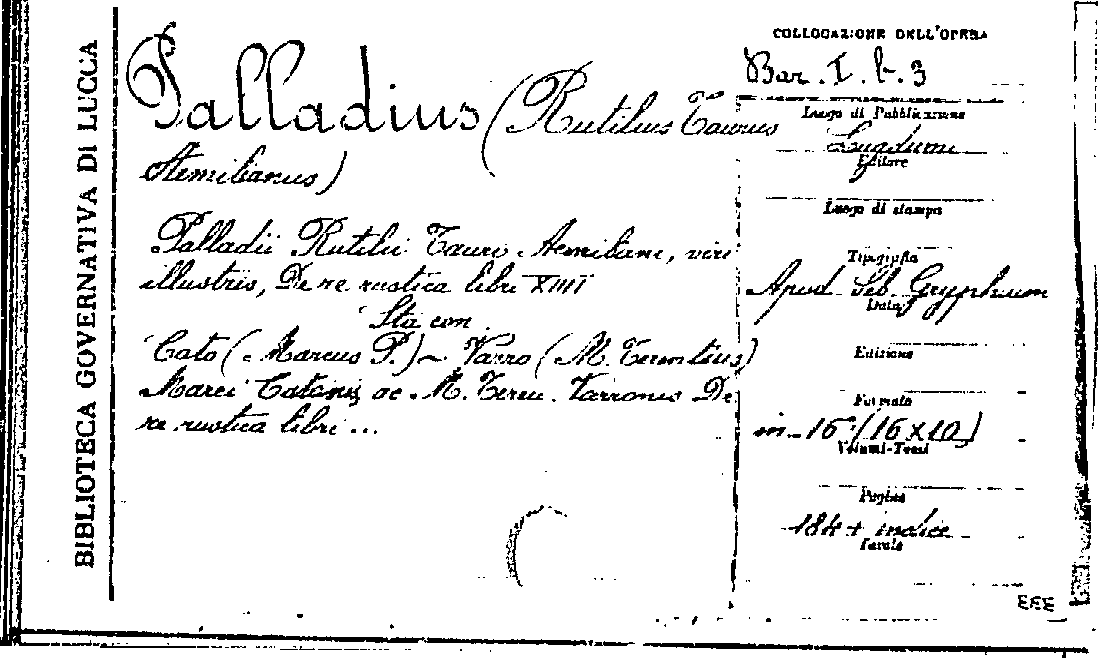 BIBLIOTECA GOVERNATIVA DI LUCCA
Palladius (Rutilius Taurus
Aemilianus)
Palladii Rutilii Tauri Aemiliani, viri
illustris, De re rustica libri XIIII
Sta con
Cato (Marcus P.) ~ Varro (M. Terentius)
Marci Catonis ac M. Teren. Varronis De
re rustica libri ...
COLLOCAZIONE DELL'OPERA
Bar. I. b. 3
Luogo di Pubblicazione
Lugduni
Editore
Luogo di stampa
Tipografia
Apud Seb. Gryphium
Data
Edizione
Formato
in-16° (16x10)
Volumi-Tomi
Pagine
184 + indice
Tavole
333